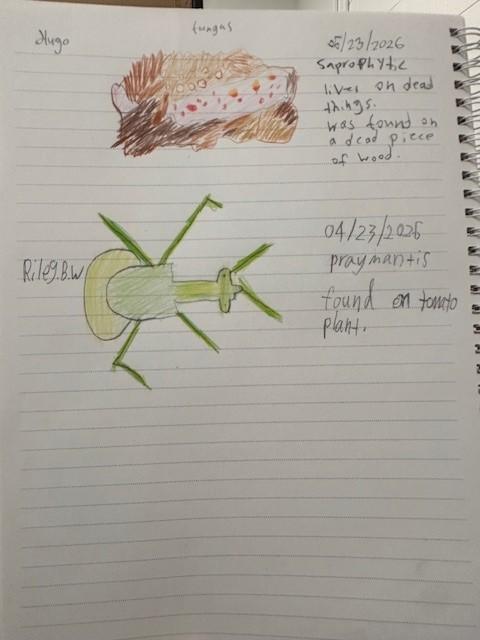 Hugo
fungas
05/23/2026
saprophytic
lives on dead
things.
was found on
a dead piece
of wood.
Riley.B.W
04/23/2026
praymantis
found on tomato
plant.